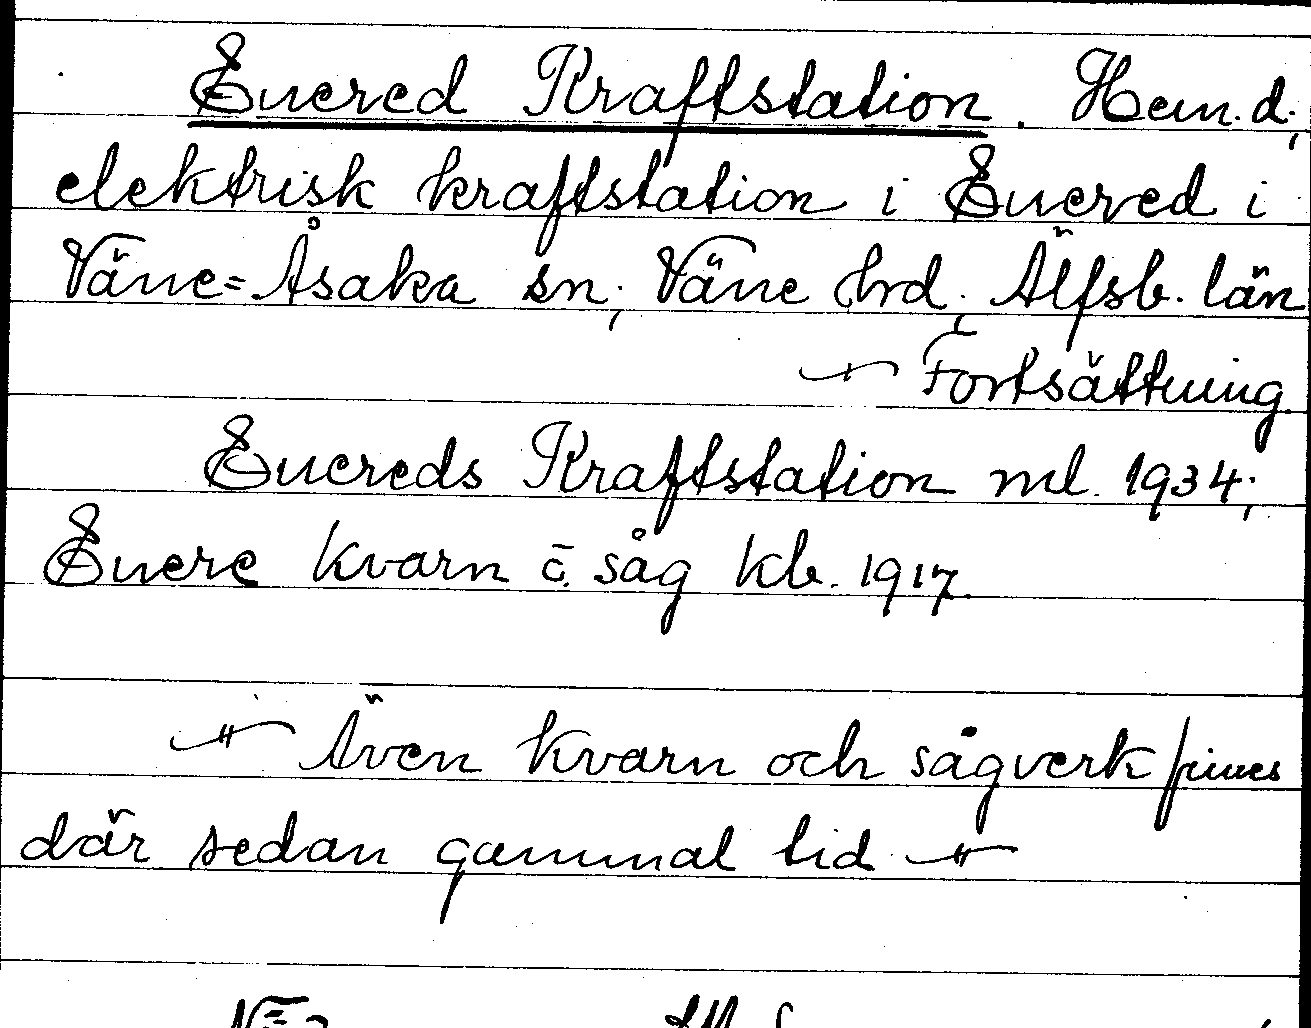 Enered Kraftstation. Hem.d.;
elektrisk kraftstation i Enered i
Väne=Åsaka sn; Väne hrd; Älfsb. län
Fortsättning.
Enereds Kraftstation ml. 1934;
Enere kvarn o. såg kb. 1917.
-"- Även kvarn och sågverk finnes
där sedan gammal tid -"-